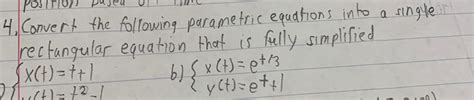 position based on time
4. Convert the following parametric equations into a single
rectangular equation that is fully simplified
{x(t)=t+1 b) {x(t)=e^t/3
y(t)=t²-1 y(t)=e^t+1